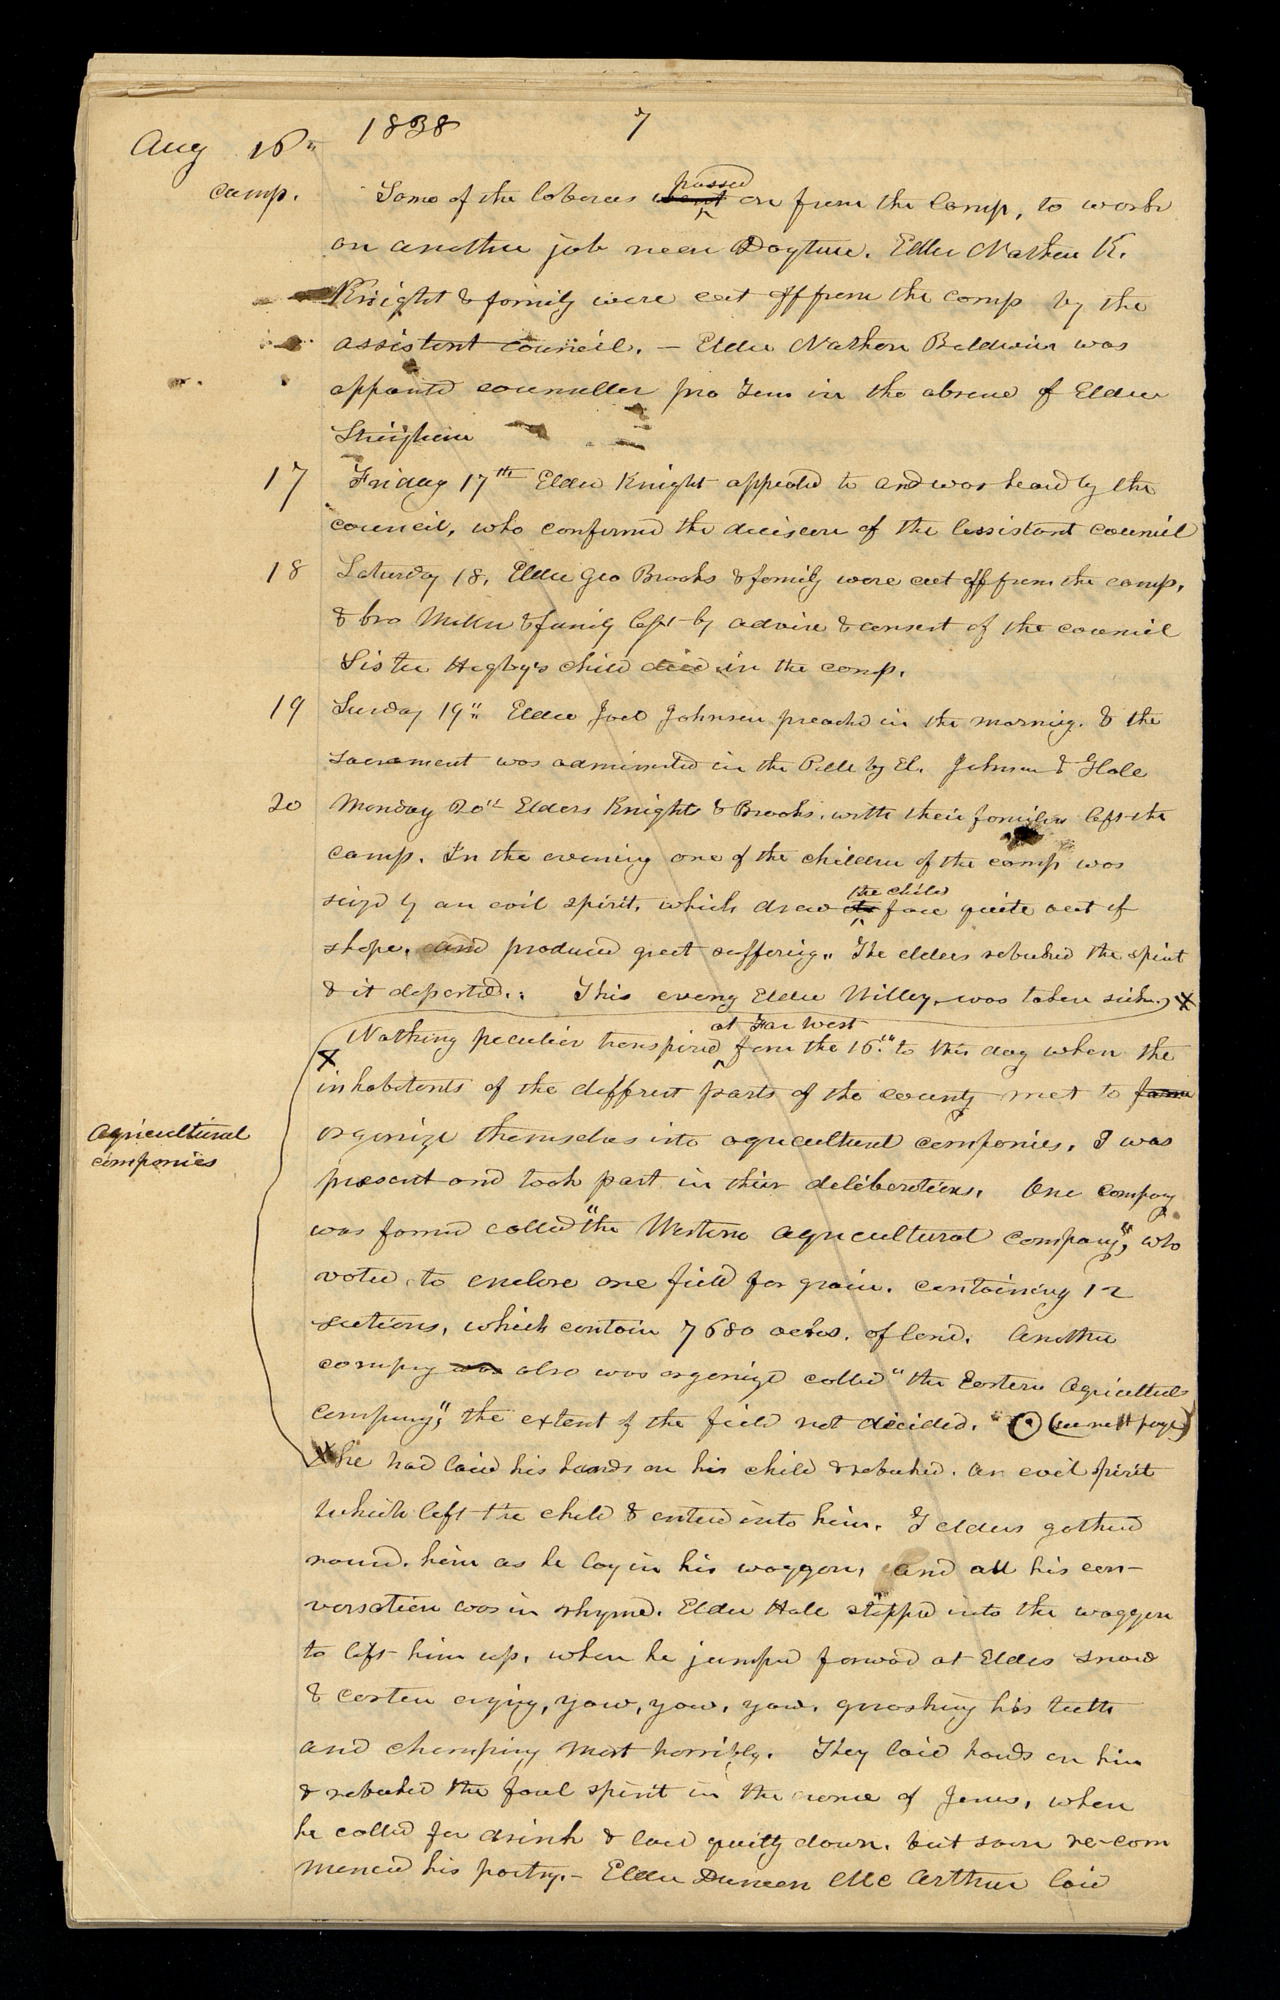 Aug 16" 1838 7
camp. Some of the laborers went passed on from the Camp, to work
on another job near Dayton. Elder Nathan K.
Knight & family were cut off from the camp by the
assistant council. – Elder Nathan Baldwin was
appointd counseller pro Tem in the absence of Elder
17 Friday 17th Elder Knight appealed to and was heard by the
council, who confirmed the decision of the assistant council
18 Saturday 18, Elder Geo Brooks & family were cut off from the camp,
& bro Miller & family left by advice & consent of the council
Sister Higby's child died in the camp.
19 Sunday 19" Elder Joel Johnson preachd in the morning. & the
sacrament was administed in the P.M. by El. Johnson & Hale
20 Monday 20th Elders Knight & Brooks, with their families left the
camp. In the evening one of the children of the camp was
seizd by an evil spirit, which drew its the child face quite out of
shape, and produced great suffering" The elders rebuked the spirit
& it departed.: This eveng Elder Willey, was taken sick. X
X Nothing peculiar transpired at Far West from the 16th to this day when the
inhabitants of the diffrent parts of the county met to form
Agricultural organize themselves into agricultural companies. I was
companies present and took part in their deliberations. One company
was formd called "the Western Agricultural Company", who
voted to enclose one field for grain. containing 12
sections, which contain 7680 acres. of land. Another
compny was also was organizd called "the Eastern Agricultural
Company", the extent of the field not decided. (see next page)
X he had laid his hands on his child & rebuked. an evil spirit
which left the child & entered into him. 7 elders gatherd
round. him as he lay in his waggon, and all his con-
versation was in rhyme. Elder Hale steppd into the waggon
to lift him up, when he jumpd forwad at Elders Snow
& Carter crying, yaw, yaw, yaw. gnashing his teeth
and champing most horribly. They laid hands on him
& rebuked the foul spirit in the name of Jesus, when
he called for drink & laid quietly down, but soon re-com
menced his poetry.– Elder Duncan Mc Arthur laid